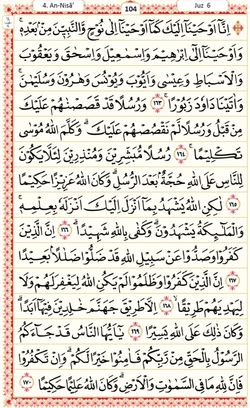 4. An-Nisâ'
104
Juz 6
اِنَّآ اَوْحَيْنَآ اِلَيْكَ كَمَآ اَوْحَيْنَآ اِلٰى نُوْحٍ وَّالنَّبِيّٖنَ مِنْۢ بَعْدِهٖۚ
وَاَوْحَيْنَآ اِلٰٓى اِبْرٰهِيْمَ وَاِسْمٰعِيْلَ وَاِسْحٰقَ وَيَعْقُوْبَ
وَالْاَسْبَاطِ وَعِيْسٰى وَاَيُّوْبَ وَيُوْنُسَ وَهٰرُوْنَ وَسُلَيْمٰنَۚ
وَاٰتَيْنَا دَاوٗدَ زَبُوْرًاۚ ١٦٣ وَرُسُلًا قَدْ قَصَصْنٰهُمْ عَلَيْكَ
مِنْ قَبْلُ وَرُسُلًا لَّمْ نَقْصُصْهُمْ عَلَيْكَۗ وَكَلَّمَ اللّٰهُ مُوْسٰى
تَكْلِيْمًاۚ ١٦٤ رُسُلًا مُّبَشِّرِيْنَ وَمُنْذِرِيْنَ لِئَلَّا يَكُوْنَ
لِلنَّاسِ عَلَى اللّٰهِ حُجَّةٌۢ بَعْدَ الرُّسُلِۗ وَكَانَ اللّٰهُ عَزِيْزًا حَكِيْمًا
١٦٥ لٰكِنِ اللّٰهُ يَشْهَدُ بِمَآ اَنْزَلَ اِلَيْكَ اَنْزَلَهٗ بِعِلْمِهٖۚ
وَالْمَلٰۤىِٕكَةُ يَشْهَدُوْنَۗ وَكَفٰى بِاللّٰهِ شَهِيْدًاۗ ١٦٦ اِنَّ الَّذِيْنَ
كَفَرُوْا وَصَدُّوْا عَنْ سَبِيْلِ اللّٰهِ قَدْ ضَلُّوْا ضَلٰلًاۢ بَعِيْدًا
١٦٧ اِنَّ الَّذِيْنَ كَفَرُوْا وَظَلَمُوْا لَمْ يَكُنِ اللّٰهُ لِيَغْفِرَ لَهُمْ وَلَا
لِيَهْدِيَهُمْ طَرِيْقًاۙ ١٦٨ اِلَّا طَرِيْقَ جَهَنَّمَ خٰلِدِيْنَ فِيْهَآ اَبَدًاۗ
وَكَانَ ذٰلِكَ عَلَى اللّٰهِ يَسِيْرًا ١٦٩ يٰٓاَيُّهَا النَّاسُ قَدْ جَاۤءَكُمُ
الرَّسُوْلُ بِالْحَقِّ مِنْ رَّبِّكُمْ فَاٰمِنُوْا خَيْرًا لَّكُمْۗ وَاِنْ تَكْفُرُوْا
فَاِنَّ لِلّٰهِ مَا فِى السَّمٰوٰتِ وَالْاَرْضِۗ وَكَانَ اللّٰهُ عَلِيْمًا حَكِيْمًا ١٧٠